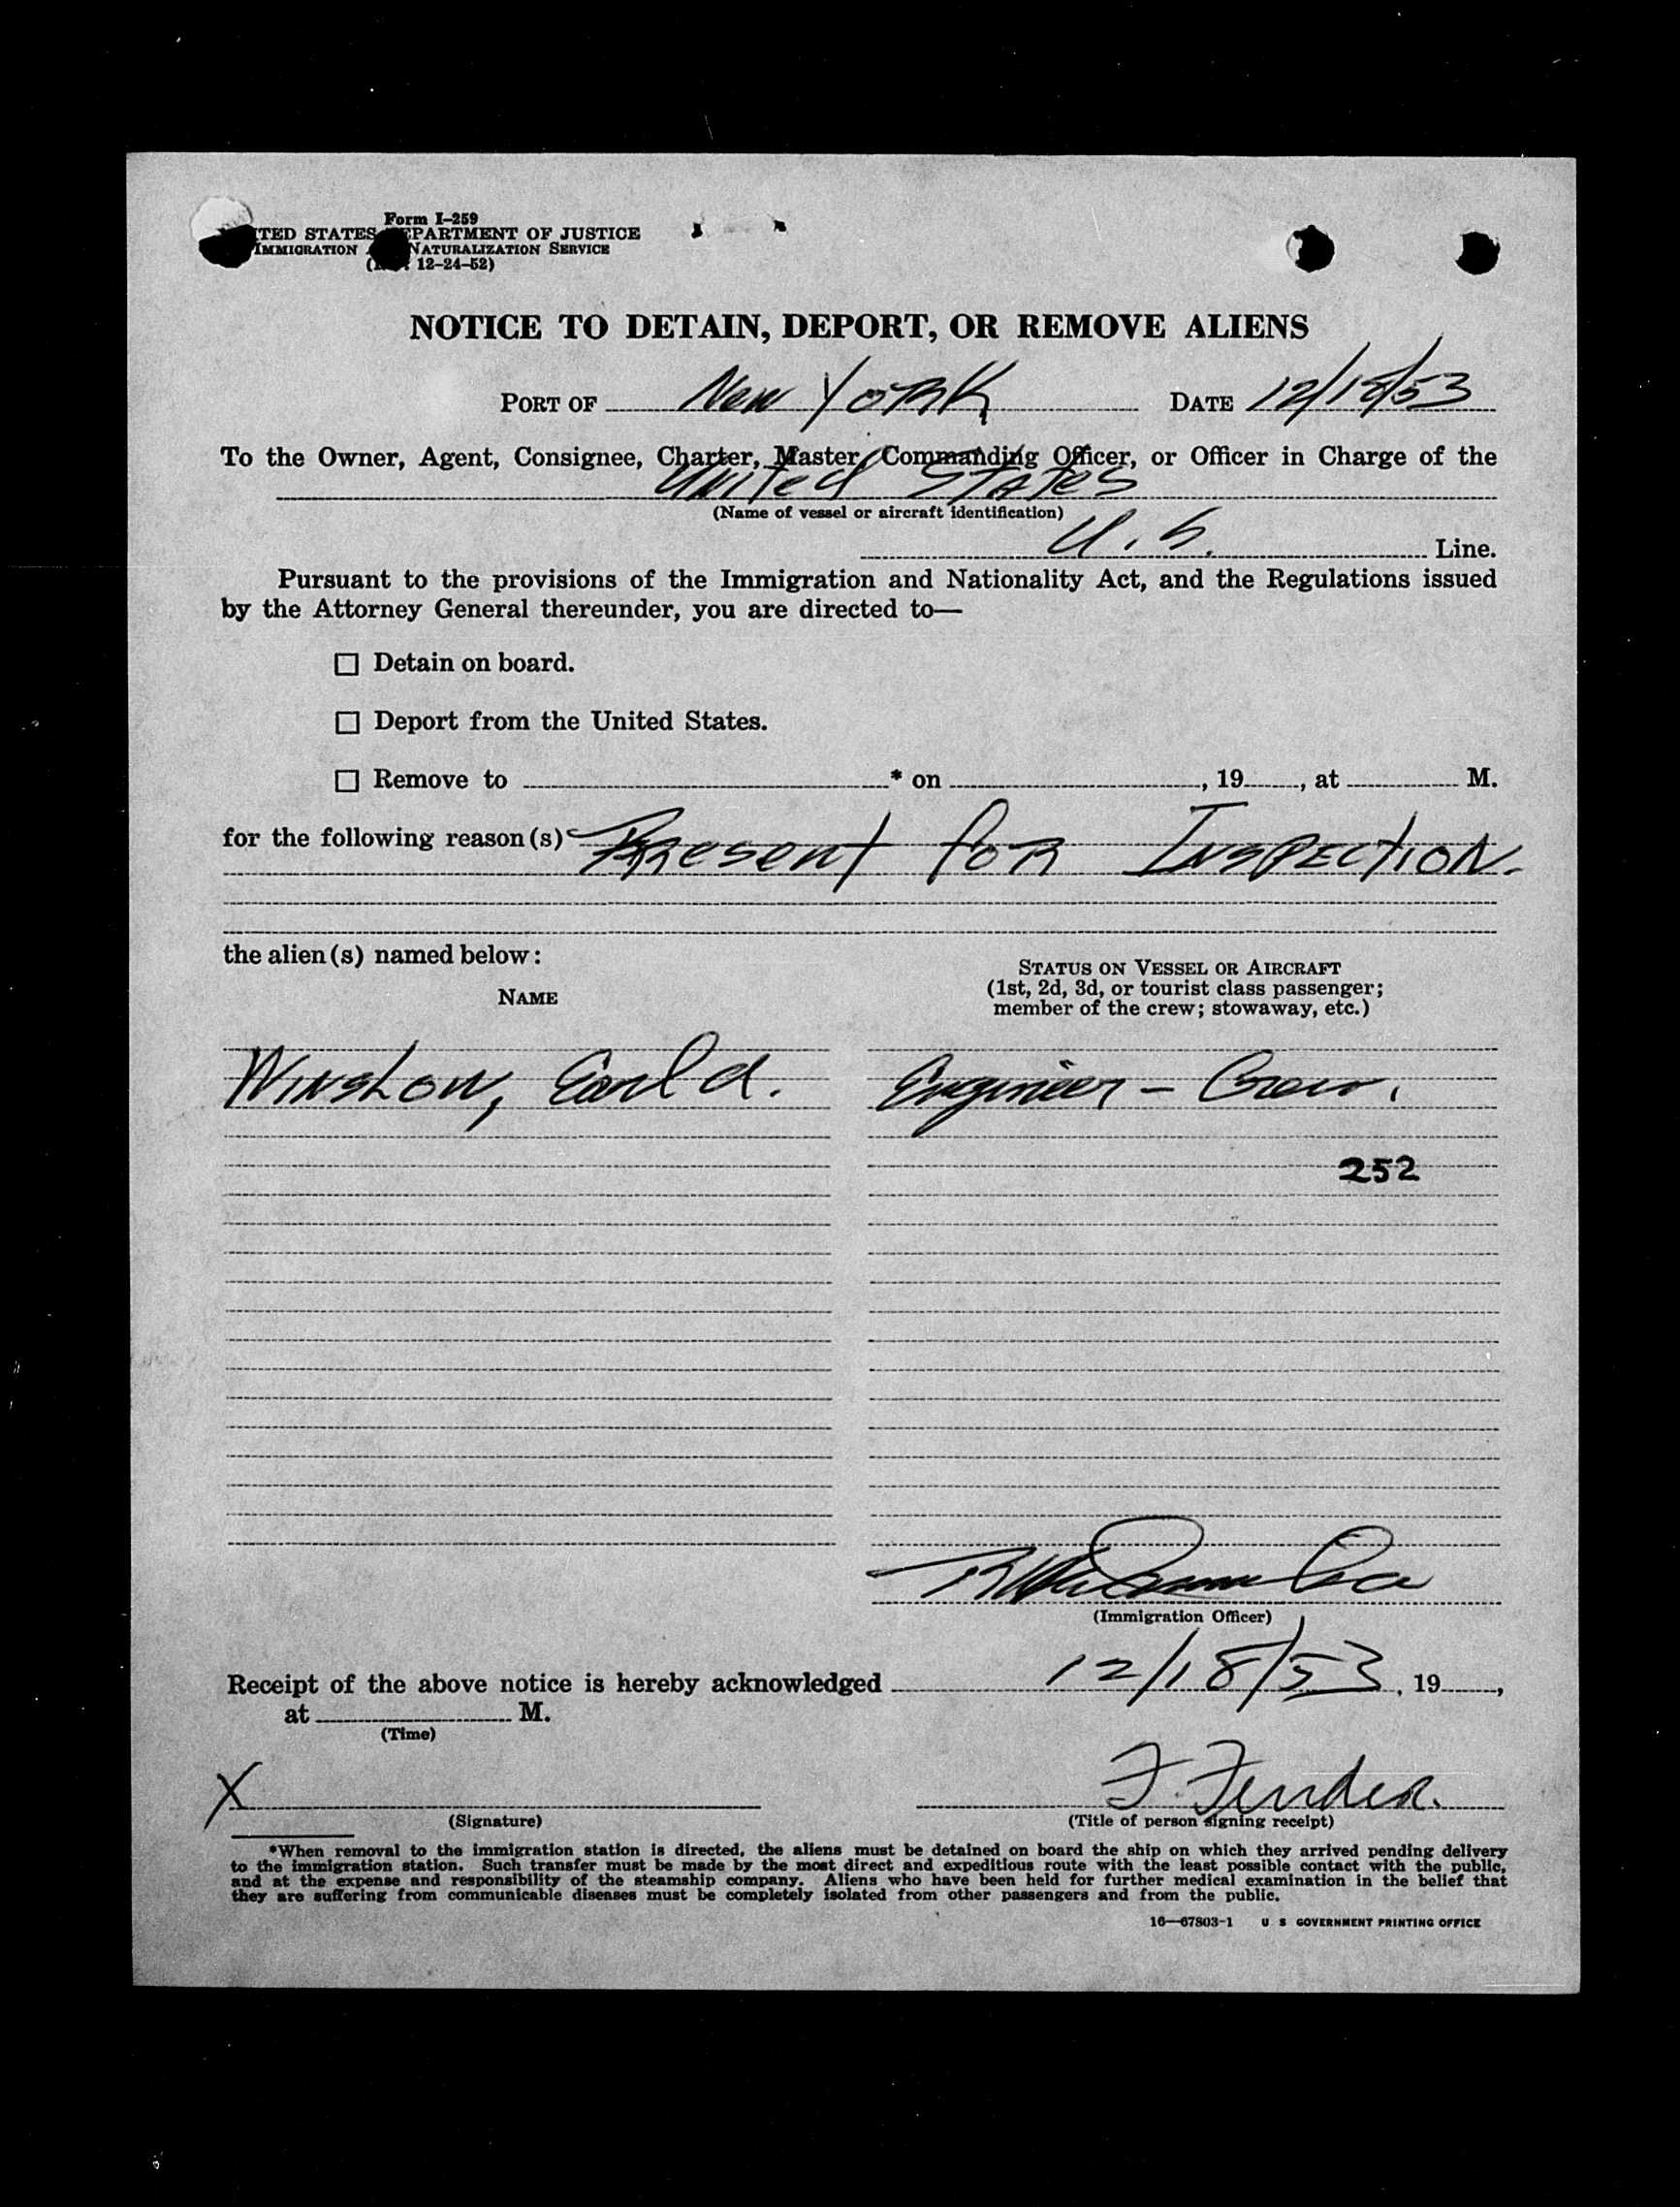 Form I-259
TED STATES PARTMENT OF JUSTICE
IMMIGRATION NATURALIZATION SERVICE
12-24-52)
NOTICE TO DETAIN, DEPORT, OR REMOVE ALIENS
PORT OF New York DATE 12/18/53
To the Owner, Agent, Consignee, Charter, Master, Commanding Officer, or Officer in Charge of the
United States
(Name of vessel or aircraft identification)
U.S. Line.
Pursuant to the provisions of the Immigration and Nationality Act, and the Regulations issued
by the Attorney General thereunder, you are directed to—
☐ Detain on board.
☐ Deport from the United States.
☐ Remove to * on , 19 , at M.
for the following reason(s) Present for Inspection.
the alien(s) named below:
NAME
STATUS ON VESSEL OR AIRCRAFT
(1st, 2d, 3d, or tourist class passenger;
member of the crew; stowaway, etc.)
Winslow, Earl d. Engineer - Crew.
252
(Immigration Officer)
Receipt of the above notice is hereby acknowledged 12/18/53, 19 ,
at M.
(Time)
X F. Fender.
(Signature) (Title of person signing receipt)
*When removal to the immigration station is directed, the aliens must be detained on board the ship on which they arrived pending delivery
to the immigration station. Such transfer must be made by the most direct and expeditious route with the least possible contact with the public,
and at the expense and responsibility of the steamship company. Aliens who have been held for further medical examination in the belief that
they are suffering from communicable diseases must be completely isolated from other passengers and from the public.
16—67803-1 U S GOVERNMENT PRINTING OFFICE